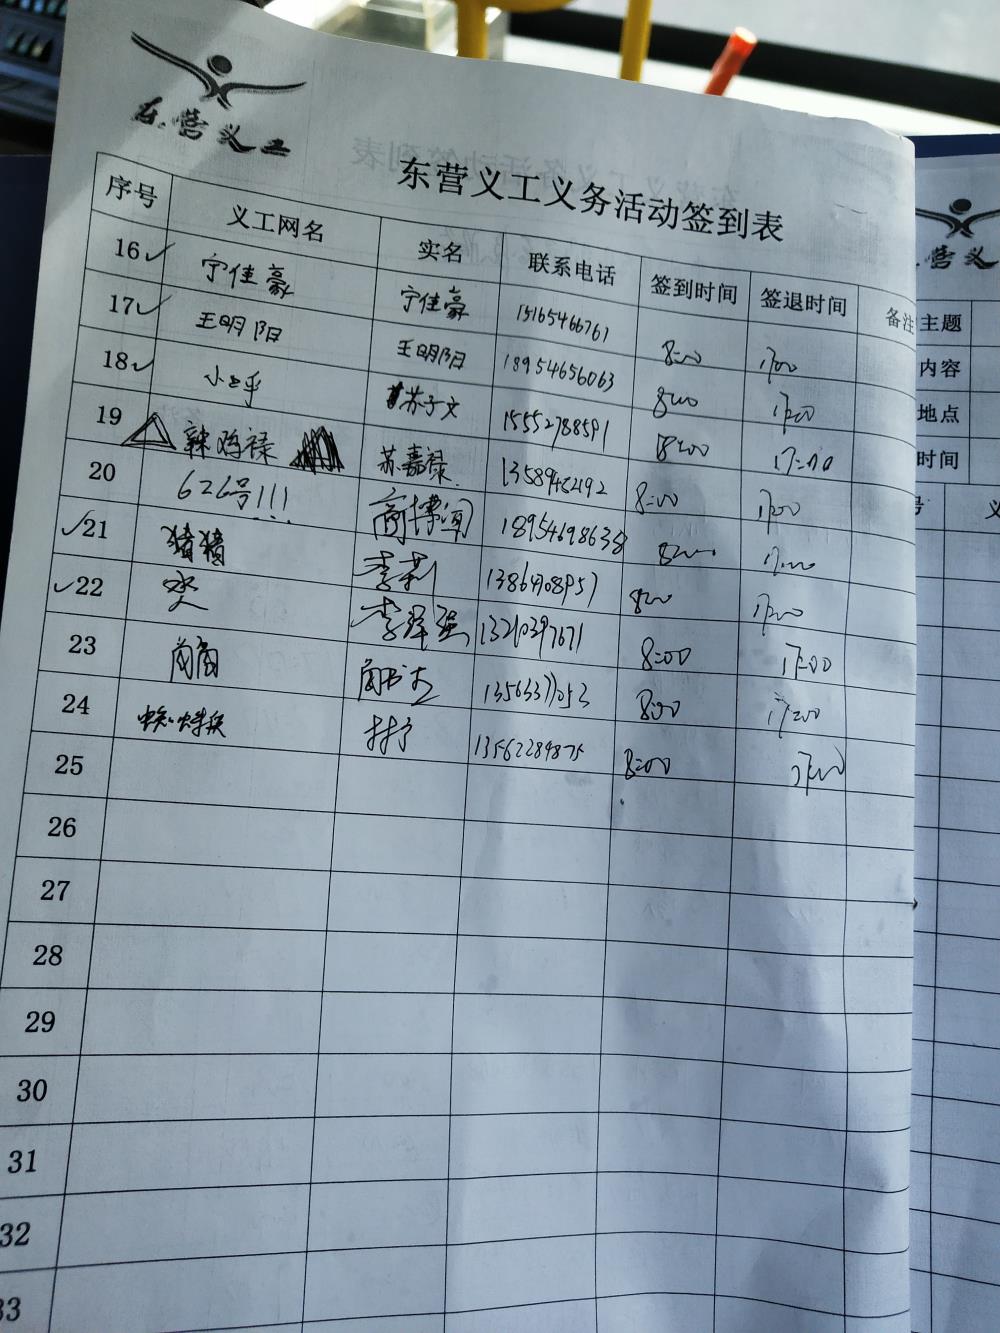 东营义工
东营义工义务活动签到表
序号 义工网名 实名 联系电话 签到时间 签退时间 备注
16 宁佳豪 宁佳豪 15165466761 8:00 17:00
17 王明阳 王明阳 18954656063 8:00 17:00
18 苏子文 15552788591 8:00 17:00
19 辣鸡禄 苏嘉禄 13589482192 8:00 17:00
20 626号!!! 商博闻 18954698638 8:00 17:00
21 猪猪 李莉 13864708957 8:00 17:00
22 李泽强 13210397671 8:00 17:00
23 13563377052 8:00 17:00
24 13562289875 8:00 17:00
25
26
27
28
29
30
31
32
33
营义
主题
内容
地点
时间
号 义